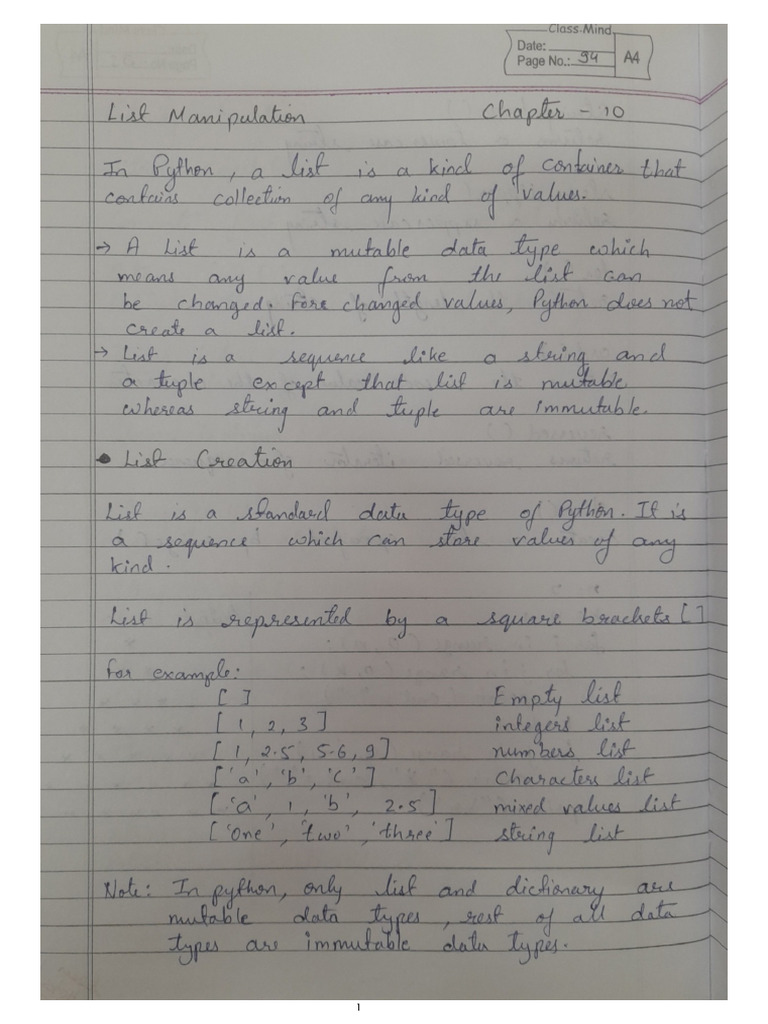 Class Mind
Date:
Page No.: 94 A4
List Manipulation Chapter - 10
In Python, a list is a kind of container that
contains collection of any kind of values.
→ A List is a mutable data type which
means any value from the list can
be changed. Fore changed values, Python does not
create a list.
→ List is a sequence like a string and
a tuple except that list is mutable
whereas string and tuple are immutable.
• List Creation
List is a standard data type of Python. It is
a sequence which can store values of any
kind.
List is represented by a square brackets [ ]
For example:
[ ] Empty list
[ 1, 2, 3 ] integers list
[ 1, 2.5, 5.6, 9 ] numbers list
[ 'a', 'b', 'c' ] characters list
[ 'a', 1, 'b', 2.5 ] mixed values list
[ 'One', 'two', 'three' ] string list
Note: In python, only list and dictionary are
mutable data types, rest of all data
types are immutable data types.
1